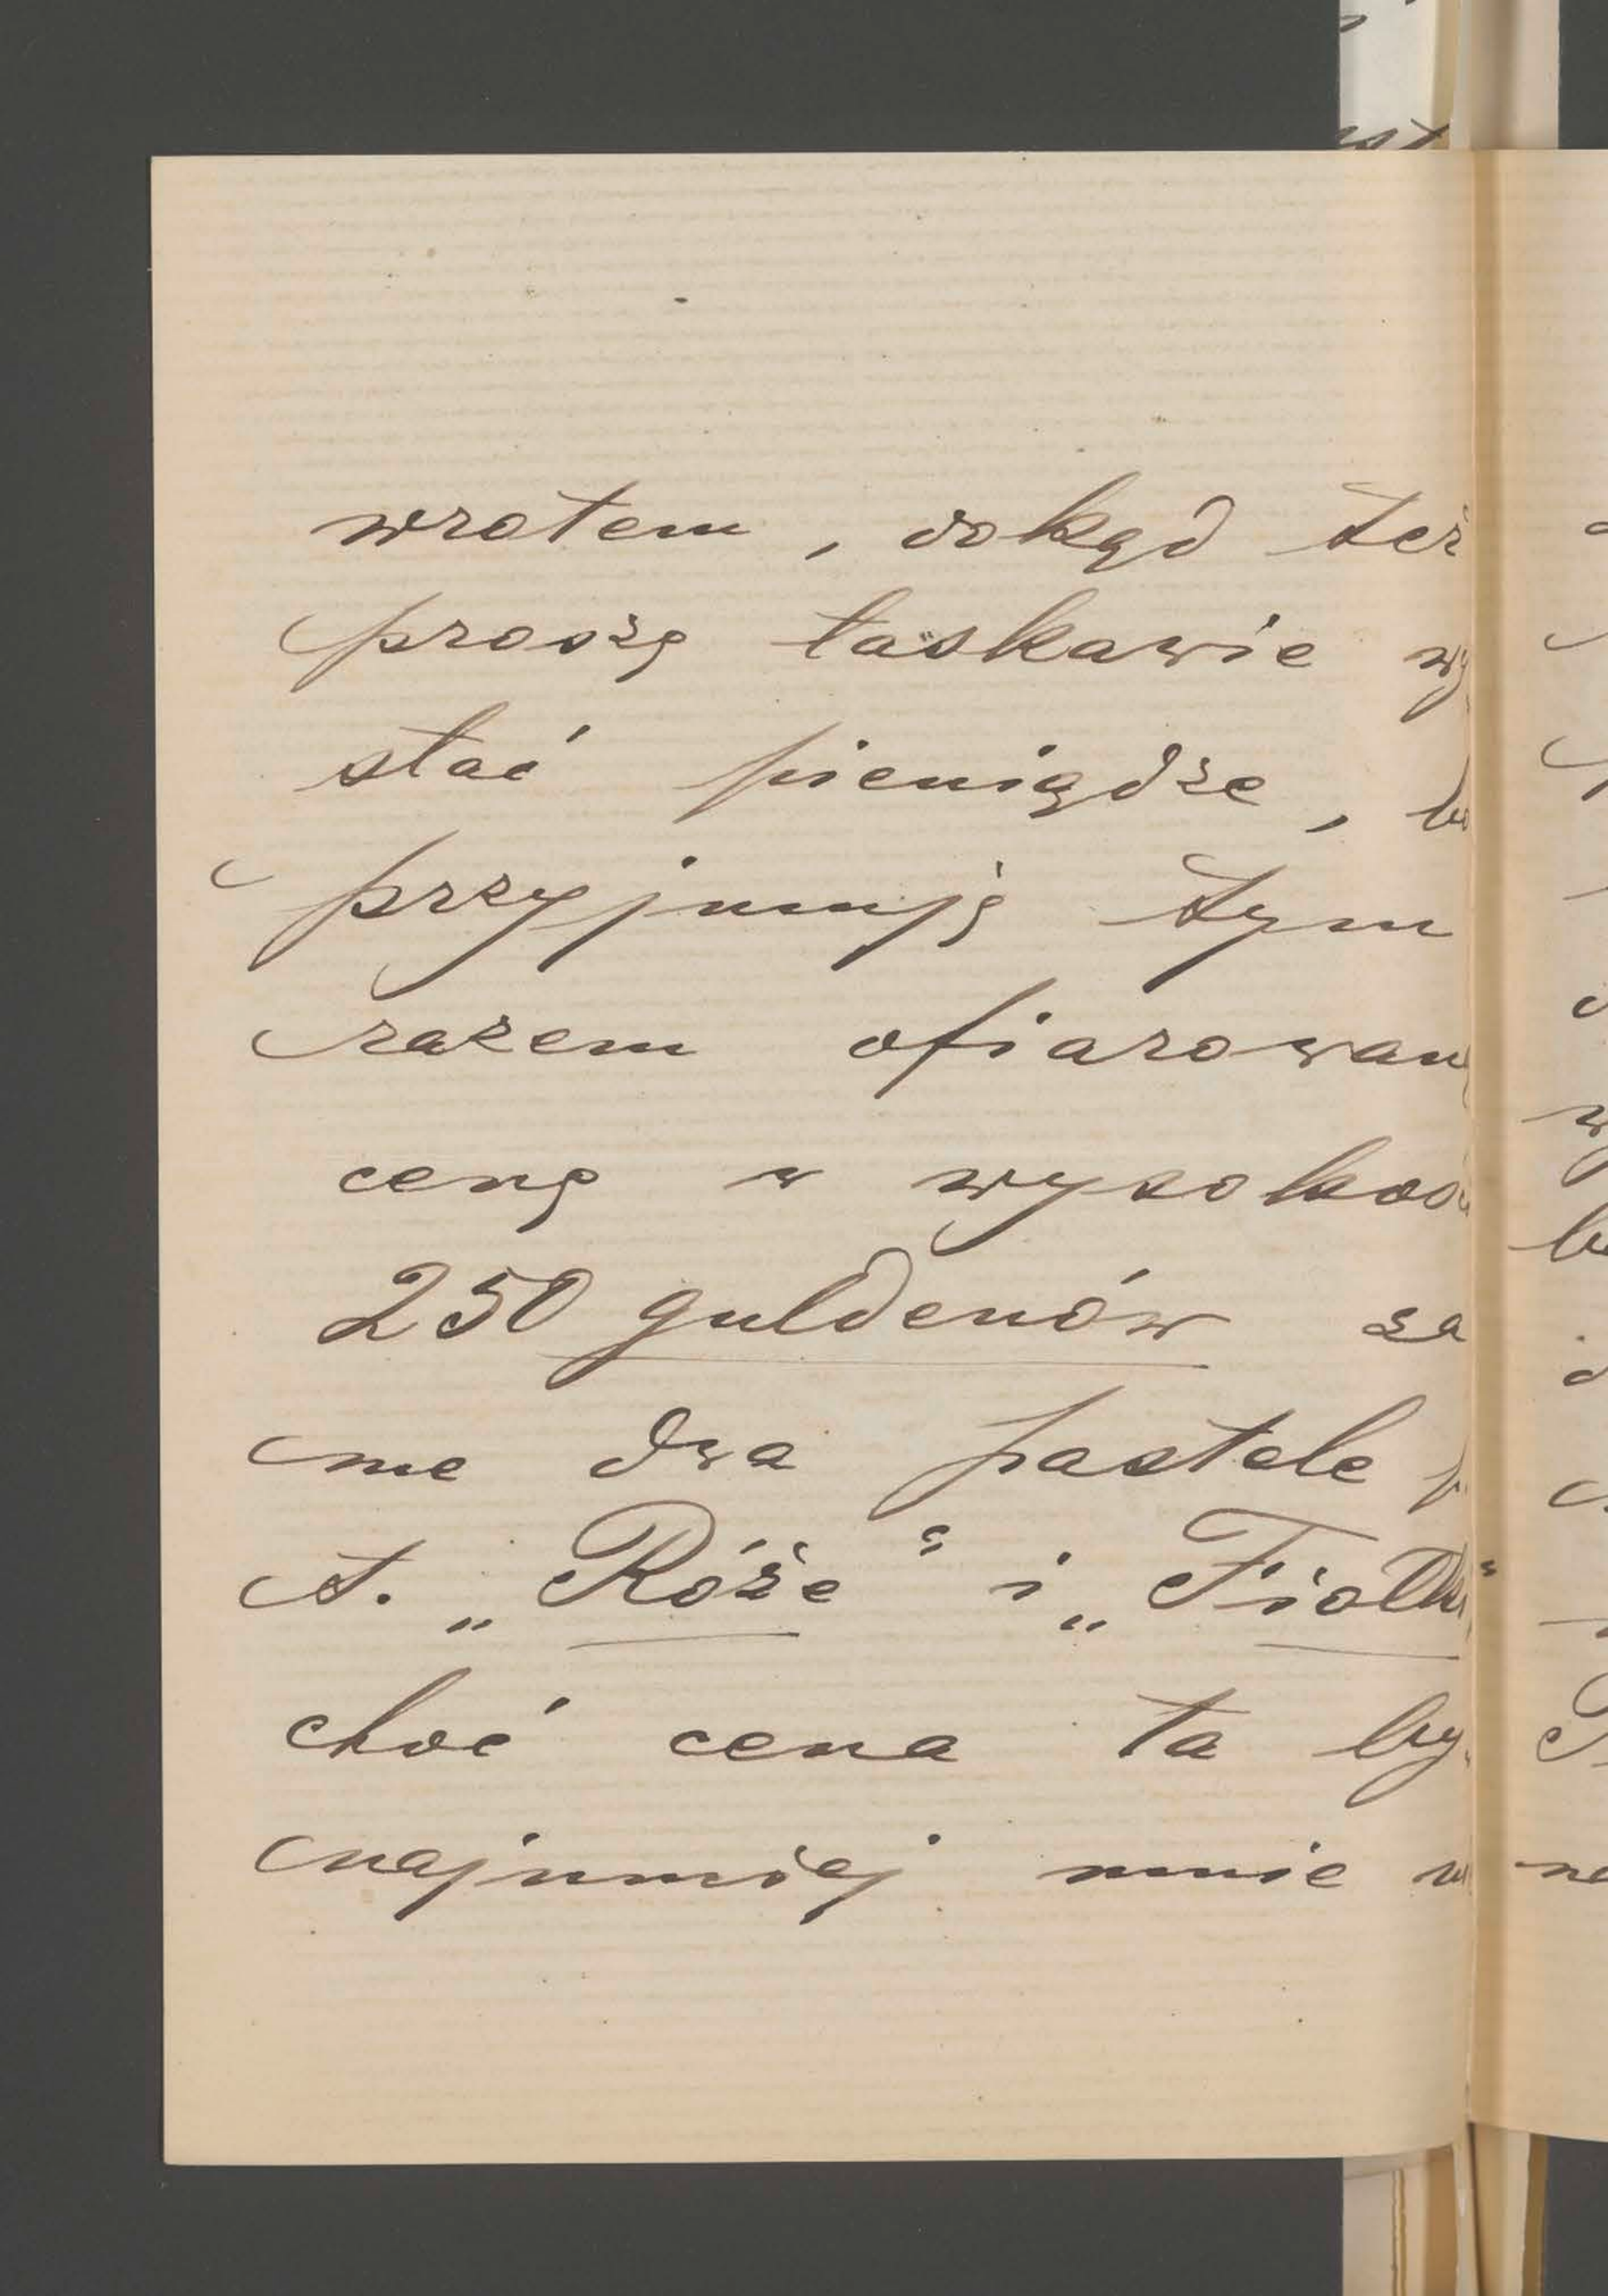 wrotem, dokąd też
proszę łaskawie wy
słać pieniądze, bo
przyjmuję tym
razem ofiarowaną
cenę w wysokości
250 guldenów za
me dwa pastele p.
t. „Róże“ i „Fiołki“
choć cena ta by
najmniej mnie